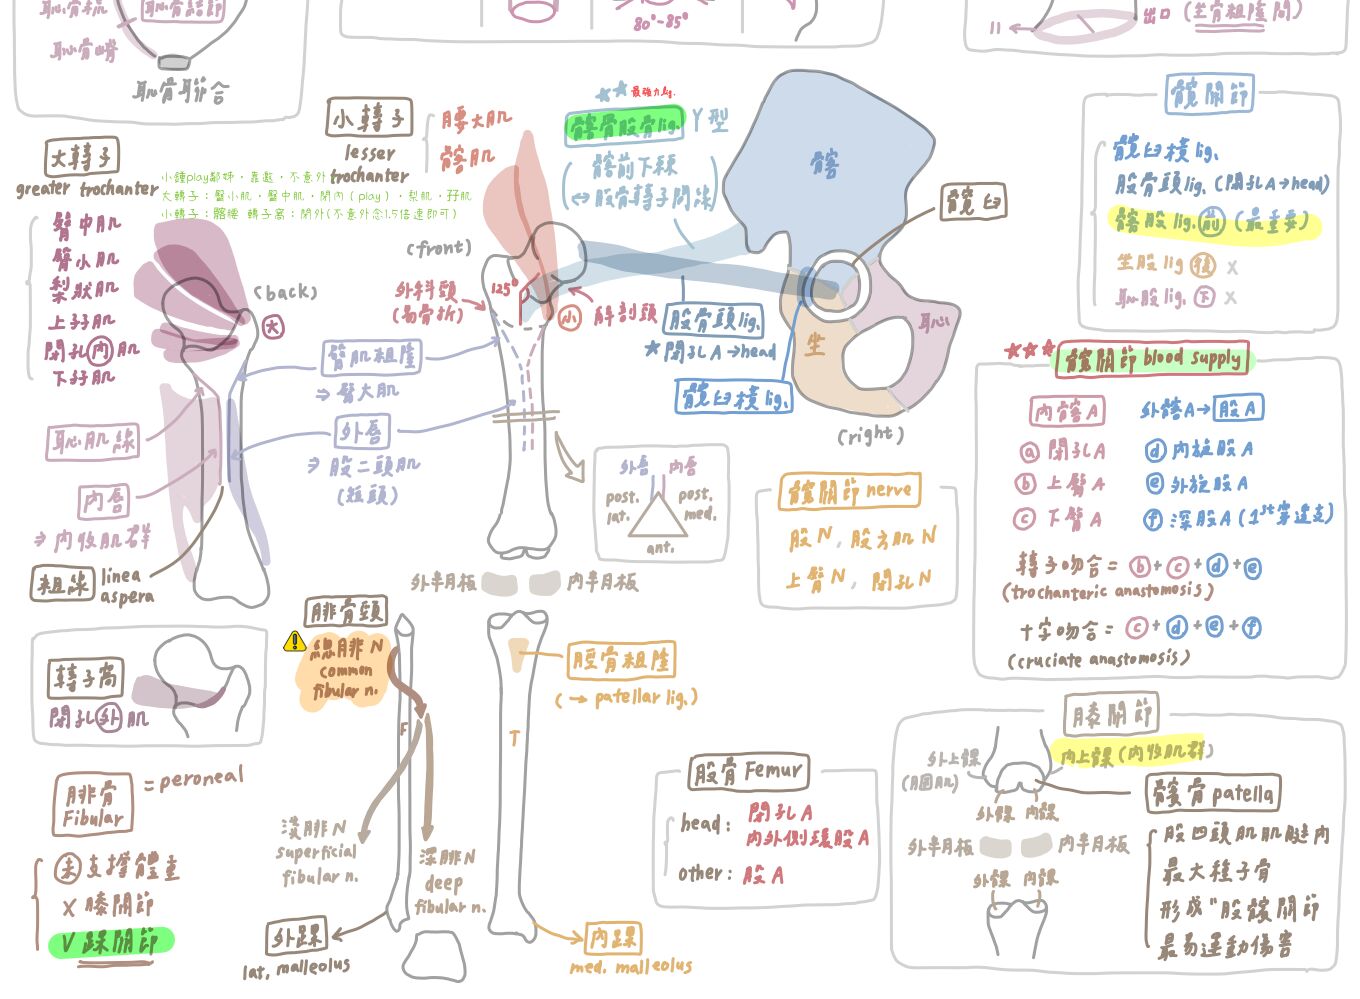 恥骨梳
恥骨結節
恥骨嵴
恥骨聯合
80°-85°
出口 (坐骨粗隆間)
大轉子
greater trochanter
臀中肌
臀小肌
梨狀肌
上孖肌
閉孔內肌
下孖肌
(back)
大
小鍾play鄰姊，靠邀，不意外
大轉子：臀小肌，臀中肌，閉內（play），梨肌，孖肌
小轉子：髂腰 轉子窩：閉外(不意外念1.5倍速即可)
小轉子
lesser
trochanter
腰大肌
髂肌
(front)
外科頸
(易骨折)
125°
小
解剖頸
最強力lig.
髂骨股骨lig.
Y型
(髂前下棘
↔股骨轉子間線)
髂
髖臼
坐
恥
(right)
股骨頭lig.
★閉孔A→head
髖臼橫lig.
臀肌粗隆
⇒臀大肌
外唇
⇒股二頭肌
(短頭)
恥肌線
內唇
⇒內收肌群
粗線
linea
aspera
外唇 內唇
post.
lat.
post.
med.
ant.
髖關節
髖臼橫lig.
股骨頭lig. (閉孔A→head)
髂股lig. 前 (最重要)
坐股lig 後 X
恥股lig. 下 X
髖關節 blood supply
內髂A
外髂A→股A
ⓐ閉孔A
ⓑ上臀A
ⓒ下臀A
ⓓ內旋股A
ⓔ外旋股A
ⓕ深股A (1st穿通支)
轉子吻合=ⓑ+ⓒ+ⓓ+ⓔ
(trochanteric anastomosis)
十字吻合=ⓒ+ⓓ+ⓔ+ⓕ
(cruciate anastomosis)
髖關節 nerve
股N, 股方肌N
上臀N, 閉孔N
外半月板
內半月板
腓骨頭
總腓N
common
fibular n.
F
T
脛骨粗隆
(→ patellar lig.)
轉子窩
閉孔外肌
腓骨
Fibular
= peroneal
未支撐體重
X 膝關節
V 踝關節
淺腓N
superficial
fibular n.
深腓N
deep
fibular n.
外踝
lat. malleolus
內踝
med. malleolus
股骨 Femur
head: 閉孔A
內外側環股A
other: 股A
膝關節
外上髁
(膕肌)
內上髁 (內收肌群)
外髁 內髁
外半月板
內半月板
外髁 內髁
髕骨 patella
股四頭肌肌腱內
最大種子骨
形成"股髕關節
最易運動傷害